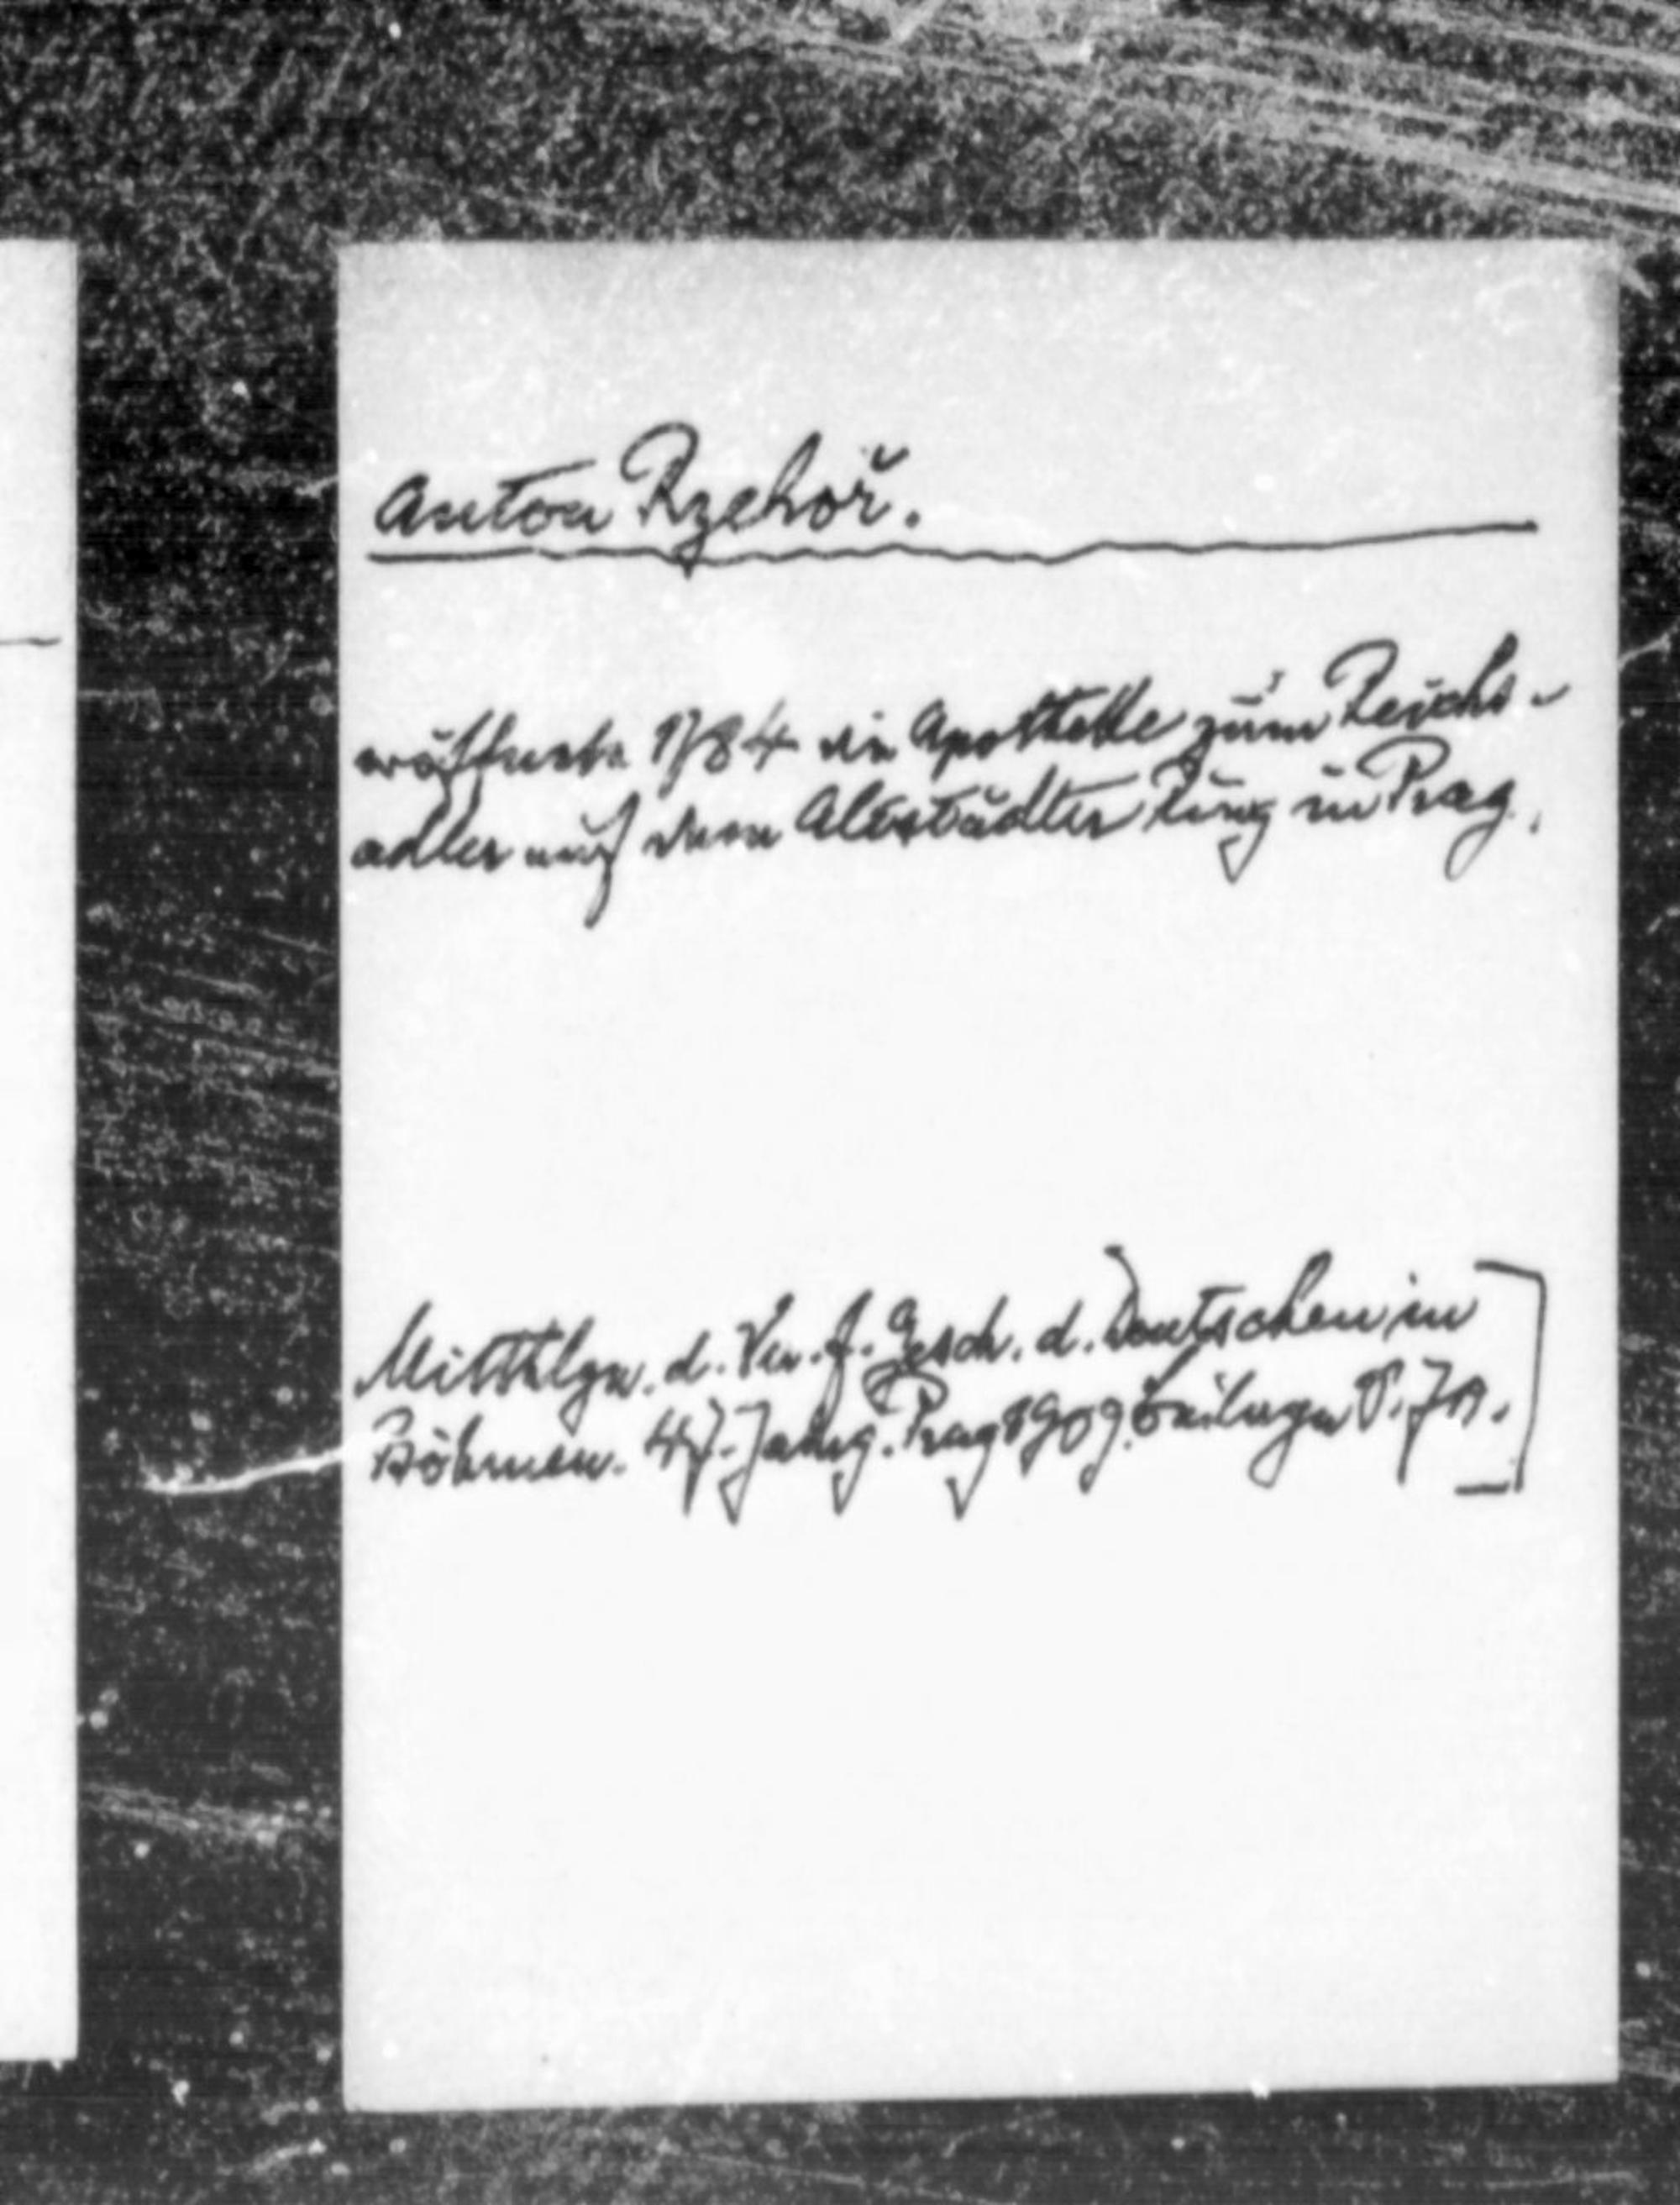 Anton Rzehoř.
eröffnete 1784 die Apotheke zum Reichs-
adler auf dem Altstädter Ring in Prag.
Mitthlgn. d. Ver. f. Gesch. d. Deutschen in
Böhmen. 47. Jahrg. Prag 1909. Beilage S.